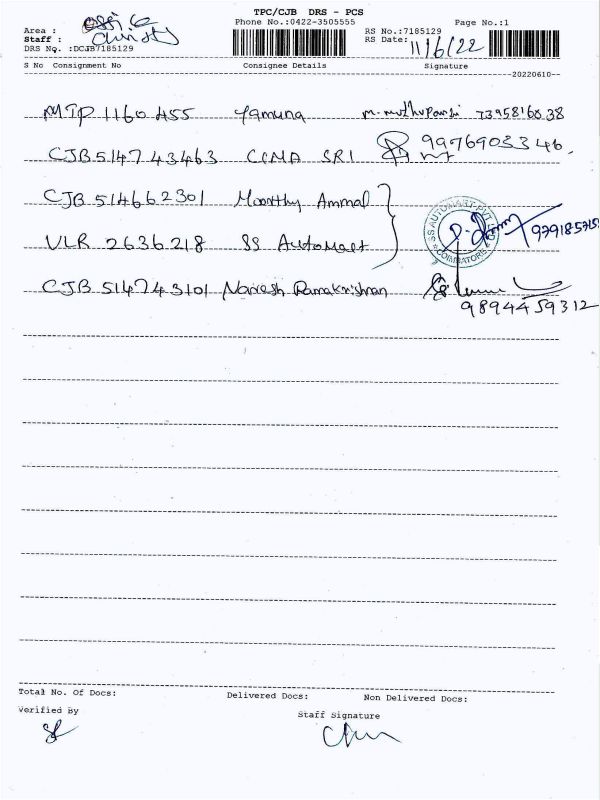 TPC/CJB DRS - PCS
Area : Phone No.:0422-3505555 Page No.:1
Staff : Christy RS No.:7185129
DRS No. :DCJB7185129 RS Date: 11/6/22
S No Consignment No Consignee Details Signature
--20220610--
MTP 1160 455 Yamuna M. Muthupandi 7395816838
CJB 514743463 CCMA SRI 9976903346
CJB 514662301 Moorthy Ammal
VLR 2636218 SS Automart SS AUTOMART PVT LTD COIMBATORE
CJB 514743101 Naresh Ramakrishnan
9894459312
Total No. Of Docs: Delivered Docs: Non Delivered Docs:
Verified By Staff Signature